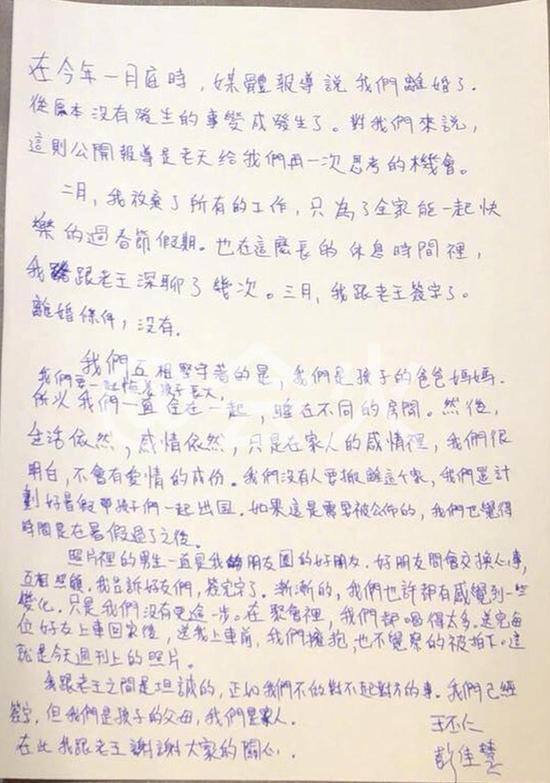 在今年一月底時，媒體報導說我們離婚了．
從原本沒有發生的事變成發生了。對我們來說，
這則公開報導是老天給我們再一次思考的機會。
二月，我放棄了所有的工作，只為了全家能一起快
樂的過春節假期。也在這麼長的休息時間裡，
我跟老王深聊了幾次。三月，我跟老王簽字了。
離婚條件，沒有．
我們互相堅守著的是，我們是孩子的爸爸媽媽．
我們要一起陪著孩子長大，
所以我們一直住在一起，睡在不同的房間。然後，
生活依然，感情依然，只是在家人的感情裡，我們很
明白，不會有愛情的成份。我們沒有人要搬離這个家，我們還計
劃好暑假帶孩子們一起出国．如果這是需要被公佈的，我們也覺得
時間是在暑假過了之後。
照片裡的男生一直是我的朋友圈的好朋友．好朋友間會交換心事，
互相照顧．我告訴好友們，簽完字了．漸漸的，我們也許都有感覺到一些
變化．只是我們沒有更進一步。在聚會裡，我們都喝得太多，送完每
位好友上車回家後，送我上車前，我們擁抱，也不覺察的被拍下。這
就是今天週刊上的照片。
我跟老王之間是坦誠的，正如我們不做對不起對方的事．我們已經
簽字，但我們是孩子的父母，我們是家人．
在此我跟老王謝謝大家的關心．
王丕仁
彭佳慧